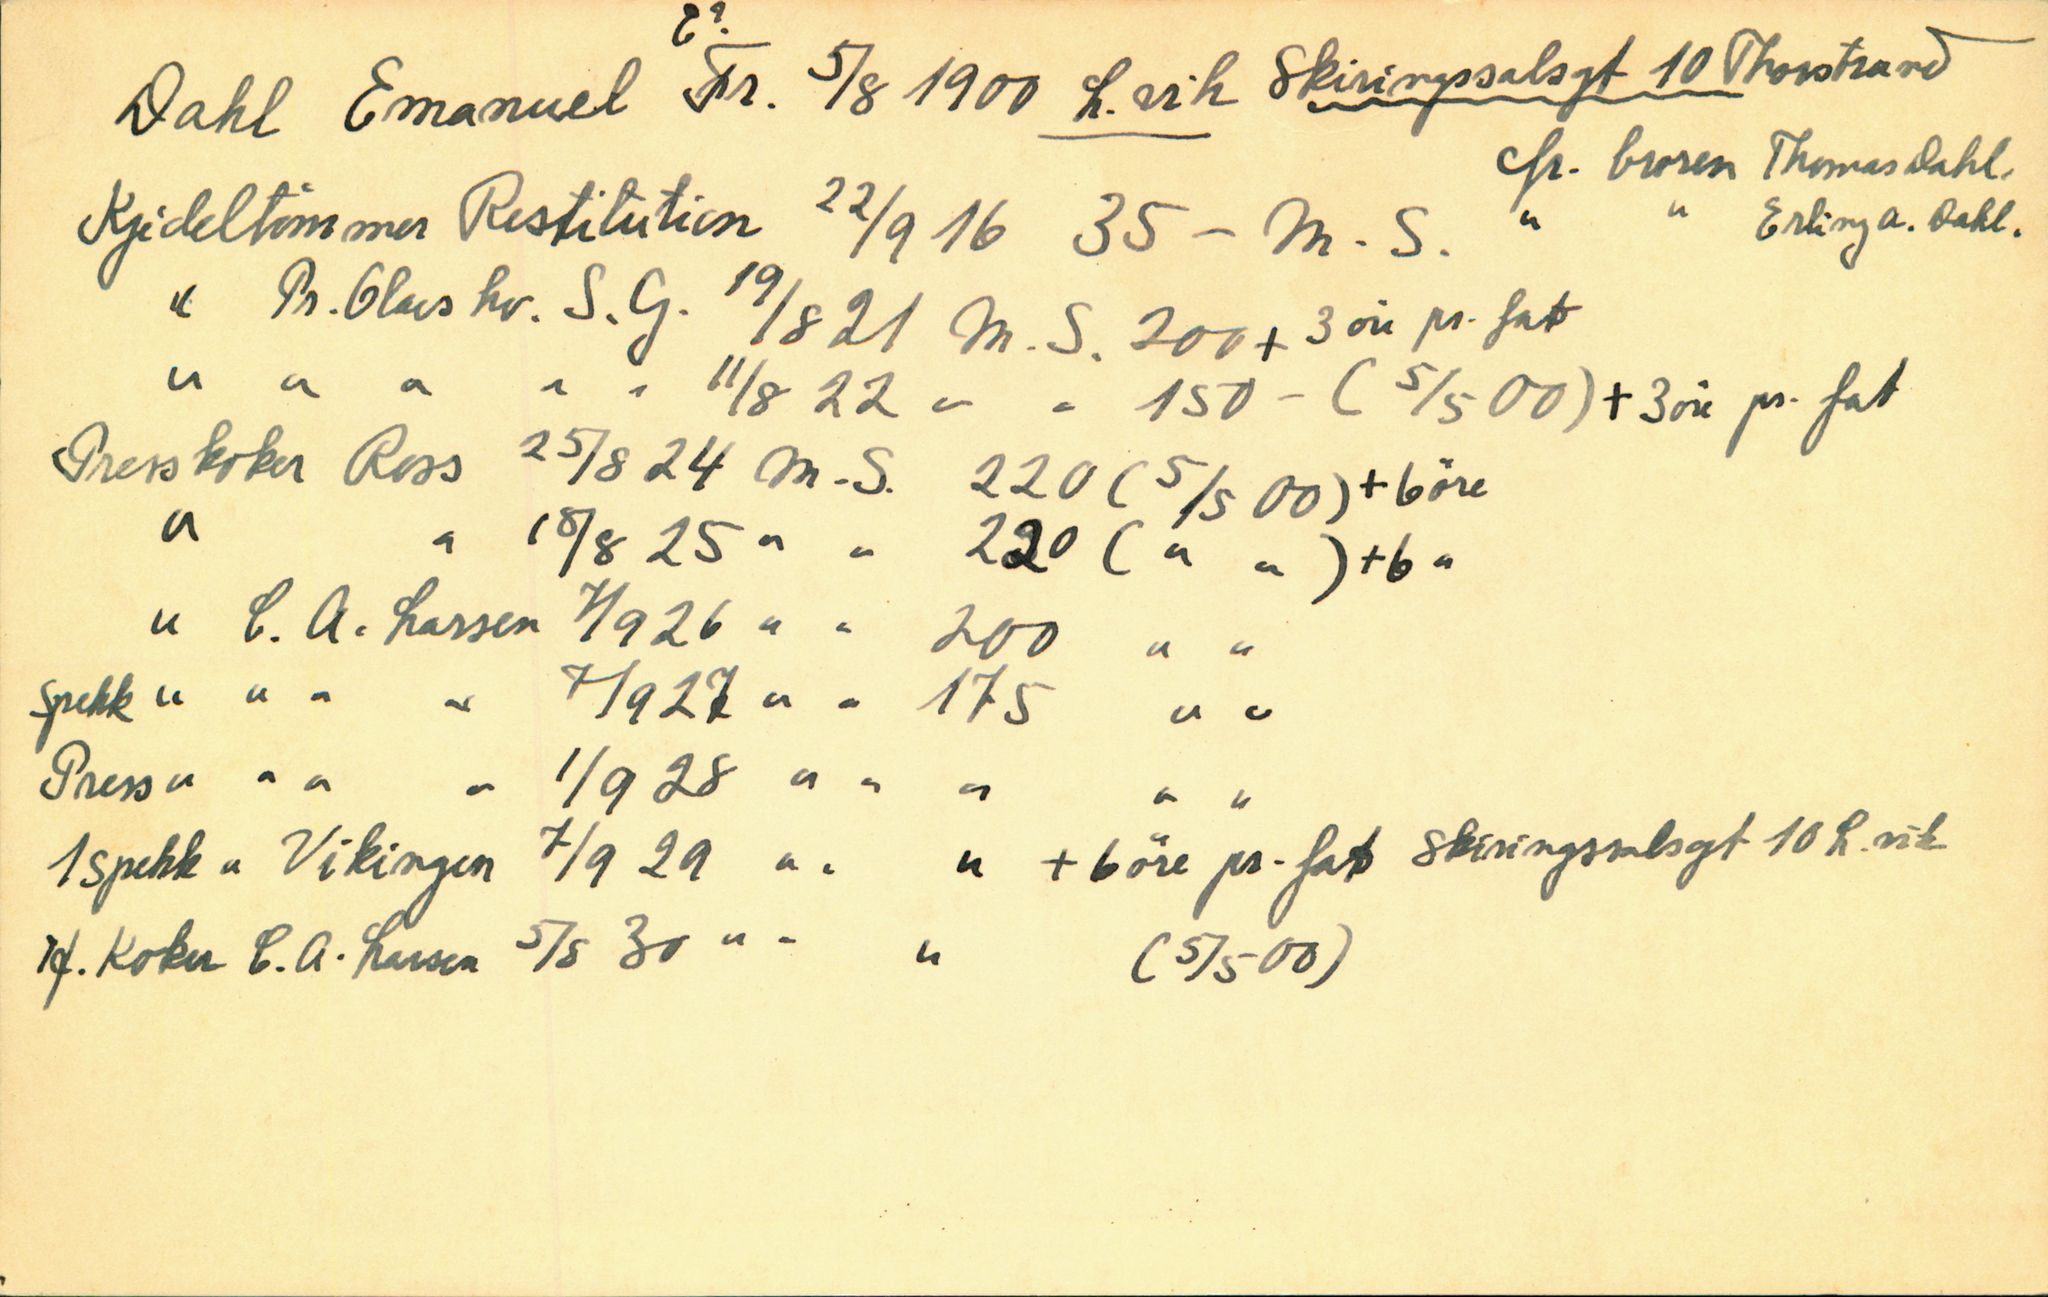 E?
Dahl Emanuel Fr. 5/8 1900 L.vik Skiringssalsgt 10 Thorstrand
cfr. broren Thomas Dahl.
Kjideltömmer Restitution 22/9 16 35 - M.S. " " Erling A. Dahl.
" Pr. Olavs hv. S.G. 19/8 21 M.S. 200 + 3 öre pr. fat
" " " " " 11/8 22 " " 150 - (5/5 00) + 3 öre pr. fat
Presskoker Ross 25/8 24 M.S. 220 (5/5 00) + 6 öre
" " 18/8 25 " " 220 ( " " ) + 6 "
" C.A. Larsen 7/9 26 " " 200 " "
Spekk " " " " 7/9 27 " " 175 " "
Press " " " " 1/9 28 " " " " "
1 Spekk " Vikingen 7/9 29 " " " + 6 öre pr. fat Skiringssalsgt 10 L.vik
Koker C.A. Larsen 5/8 30 " " " (5/5 00)